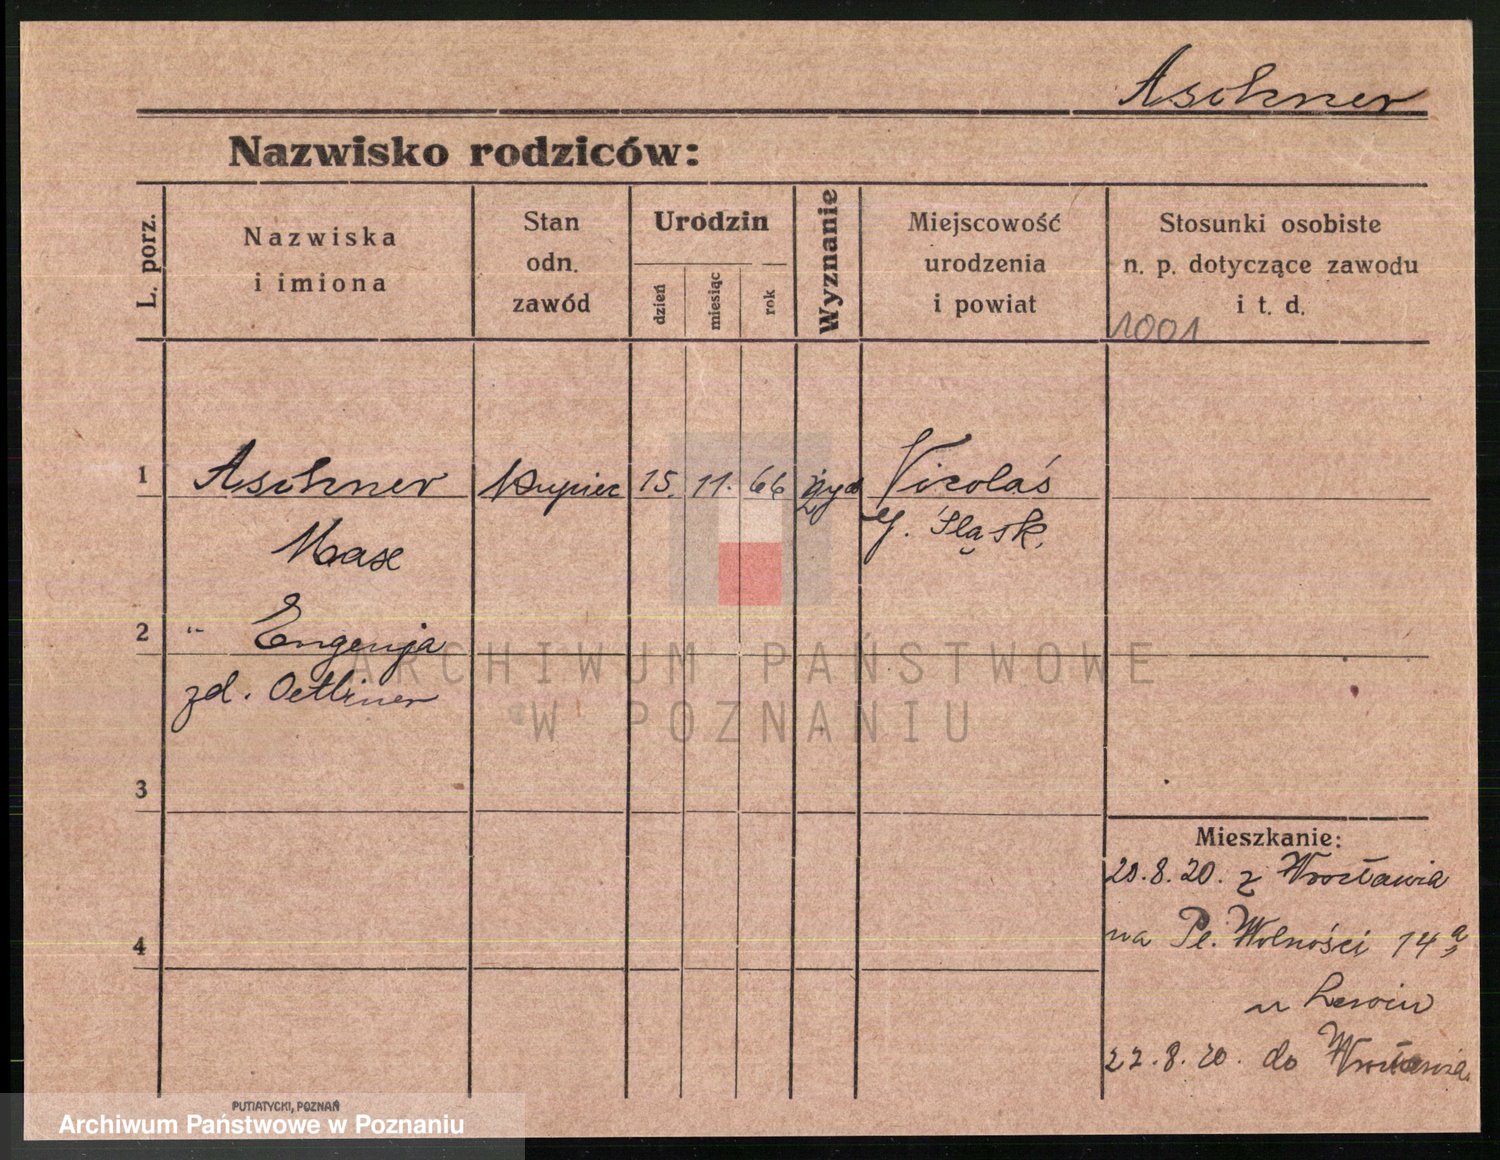 Aschner
Nazwisko rodziców:
L. porz.
Nazwiska
i imiona
Stan
odn.
zawód
Urodzin
dzień
miesiąc
rok
Wyznanie
Miejscowość
urodzenia
i powiat
Stosunki osobiste
n. p. dotyczące zawodu
i t. d.
1001
1 Aschner Kupiec 15. 11. 66 żyd Nicolaś
Max G. Śląsk.
2 " Eugenja
zd. Oettiner
3
4
Mieszkanie:
20.8.20. z Wrocławia
na Pl. Wolności 14a,
u Lewin
22.8.20. do Wrocławia.
ARCHIWUM PAŃSTWOWE
W POZNANIU
PUTIATYCKI, POZNAŃ
Archiwum Państwowe w Poznaniu